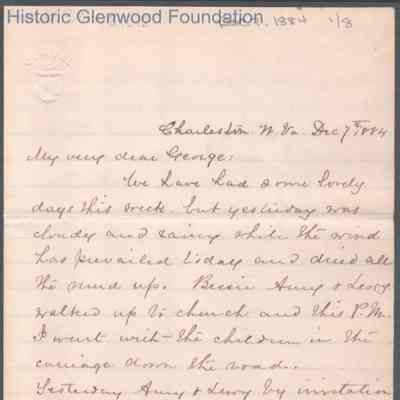 Historic Glenwood Foundation
1884 1/8
Charleston W. Va. Dec 7th, 1884
My very dear George:
We have had some lovely
days this week. but yesterday was
cloudy and rainy while the wind
has prevailed today and dried all
the mud up. Bessie Amy & Leroy
walked up to church and this P.M.
I went with the children in the
carriage down the road.
Yesterday Amy & Leroy by invitation